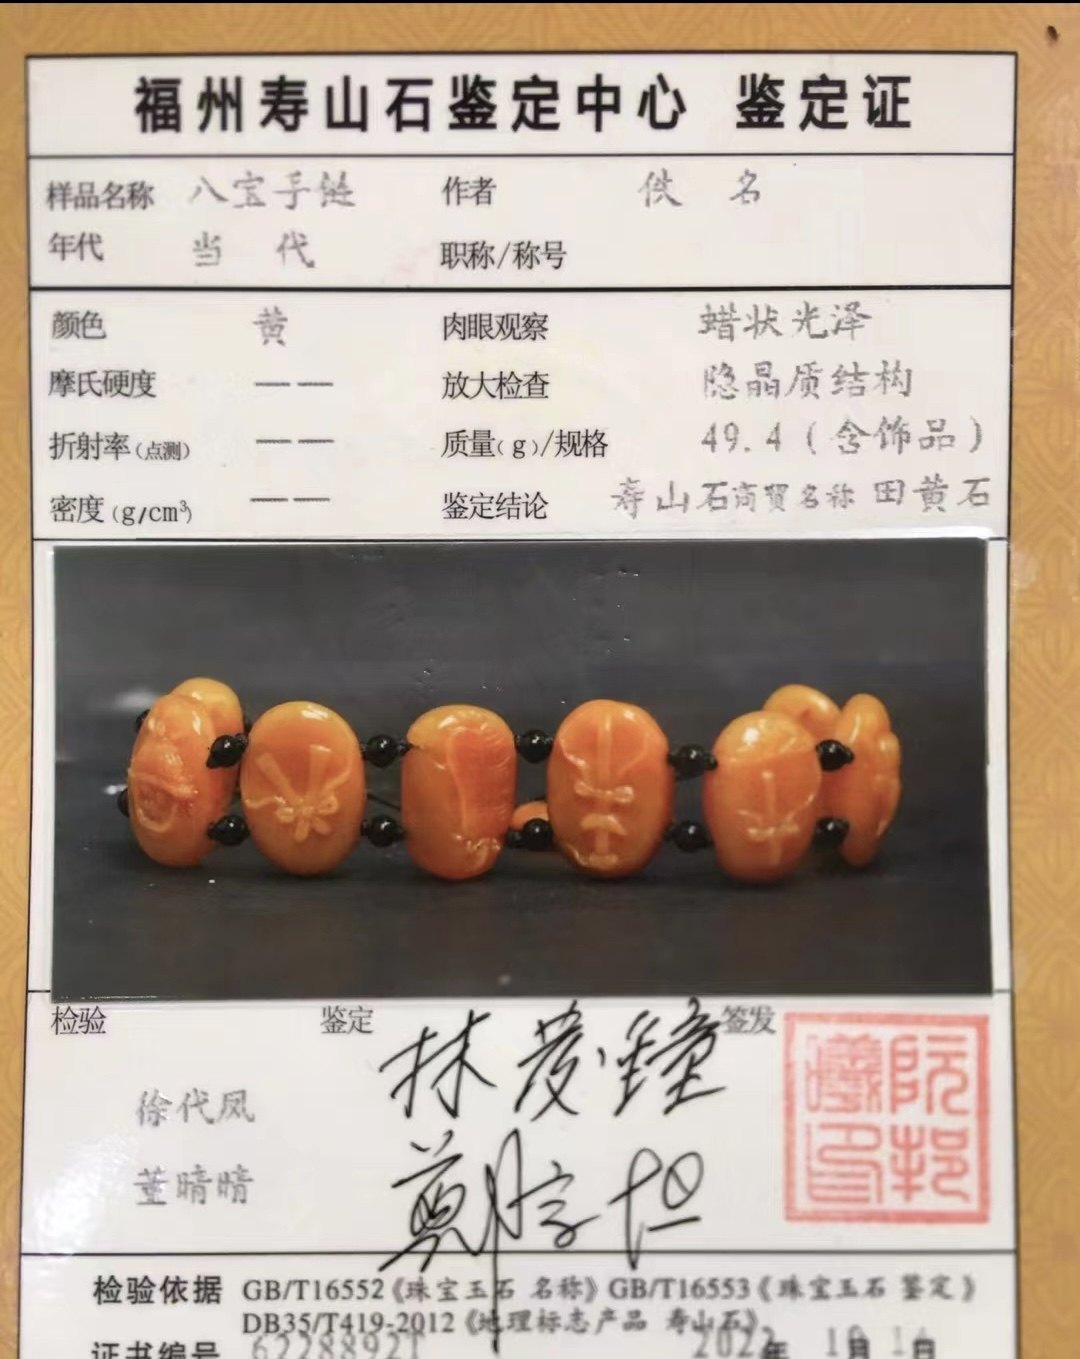 福州寿山石鉴定中心 鉴定证
样品名称 八宝手链 作者 佚 名
年代 当 代 职称/称号
颜色 黄 肉眼观察 蜡状光泽
摩氏硬度 —— 放大检查 隐晶质结构
折射率(点测) —— 质量(g)/规格 49.4(含饰品)
密度(g/cm³) —— 鉴定结论 寿山石商贸名称 田黄石
检验 鉴定 签发
徐代凤
董晴晴
检验依据 GB/T16552《珠宝玉石 名称》GB/T16553《珠宝玉石 鉴定》
DB35/T419-2012《地理标志产品 寿山石》
证书编号 年 月 日